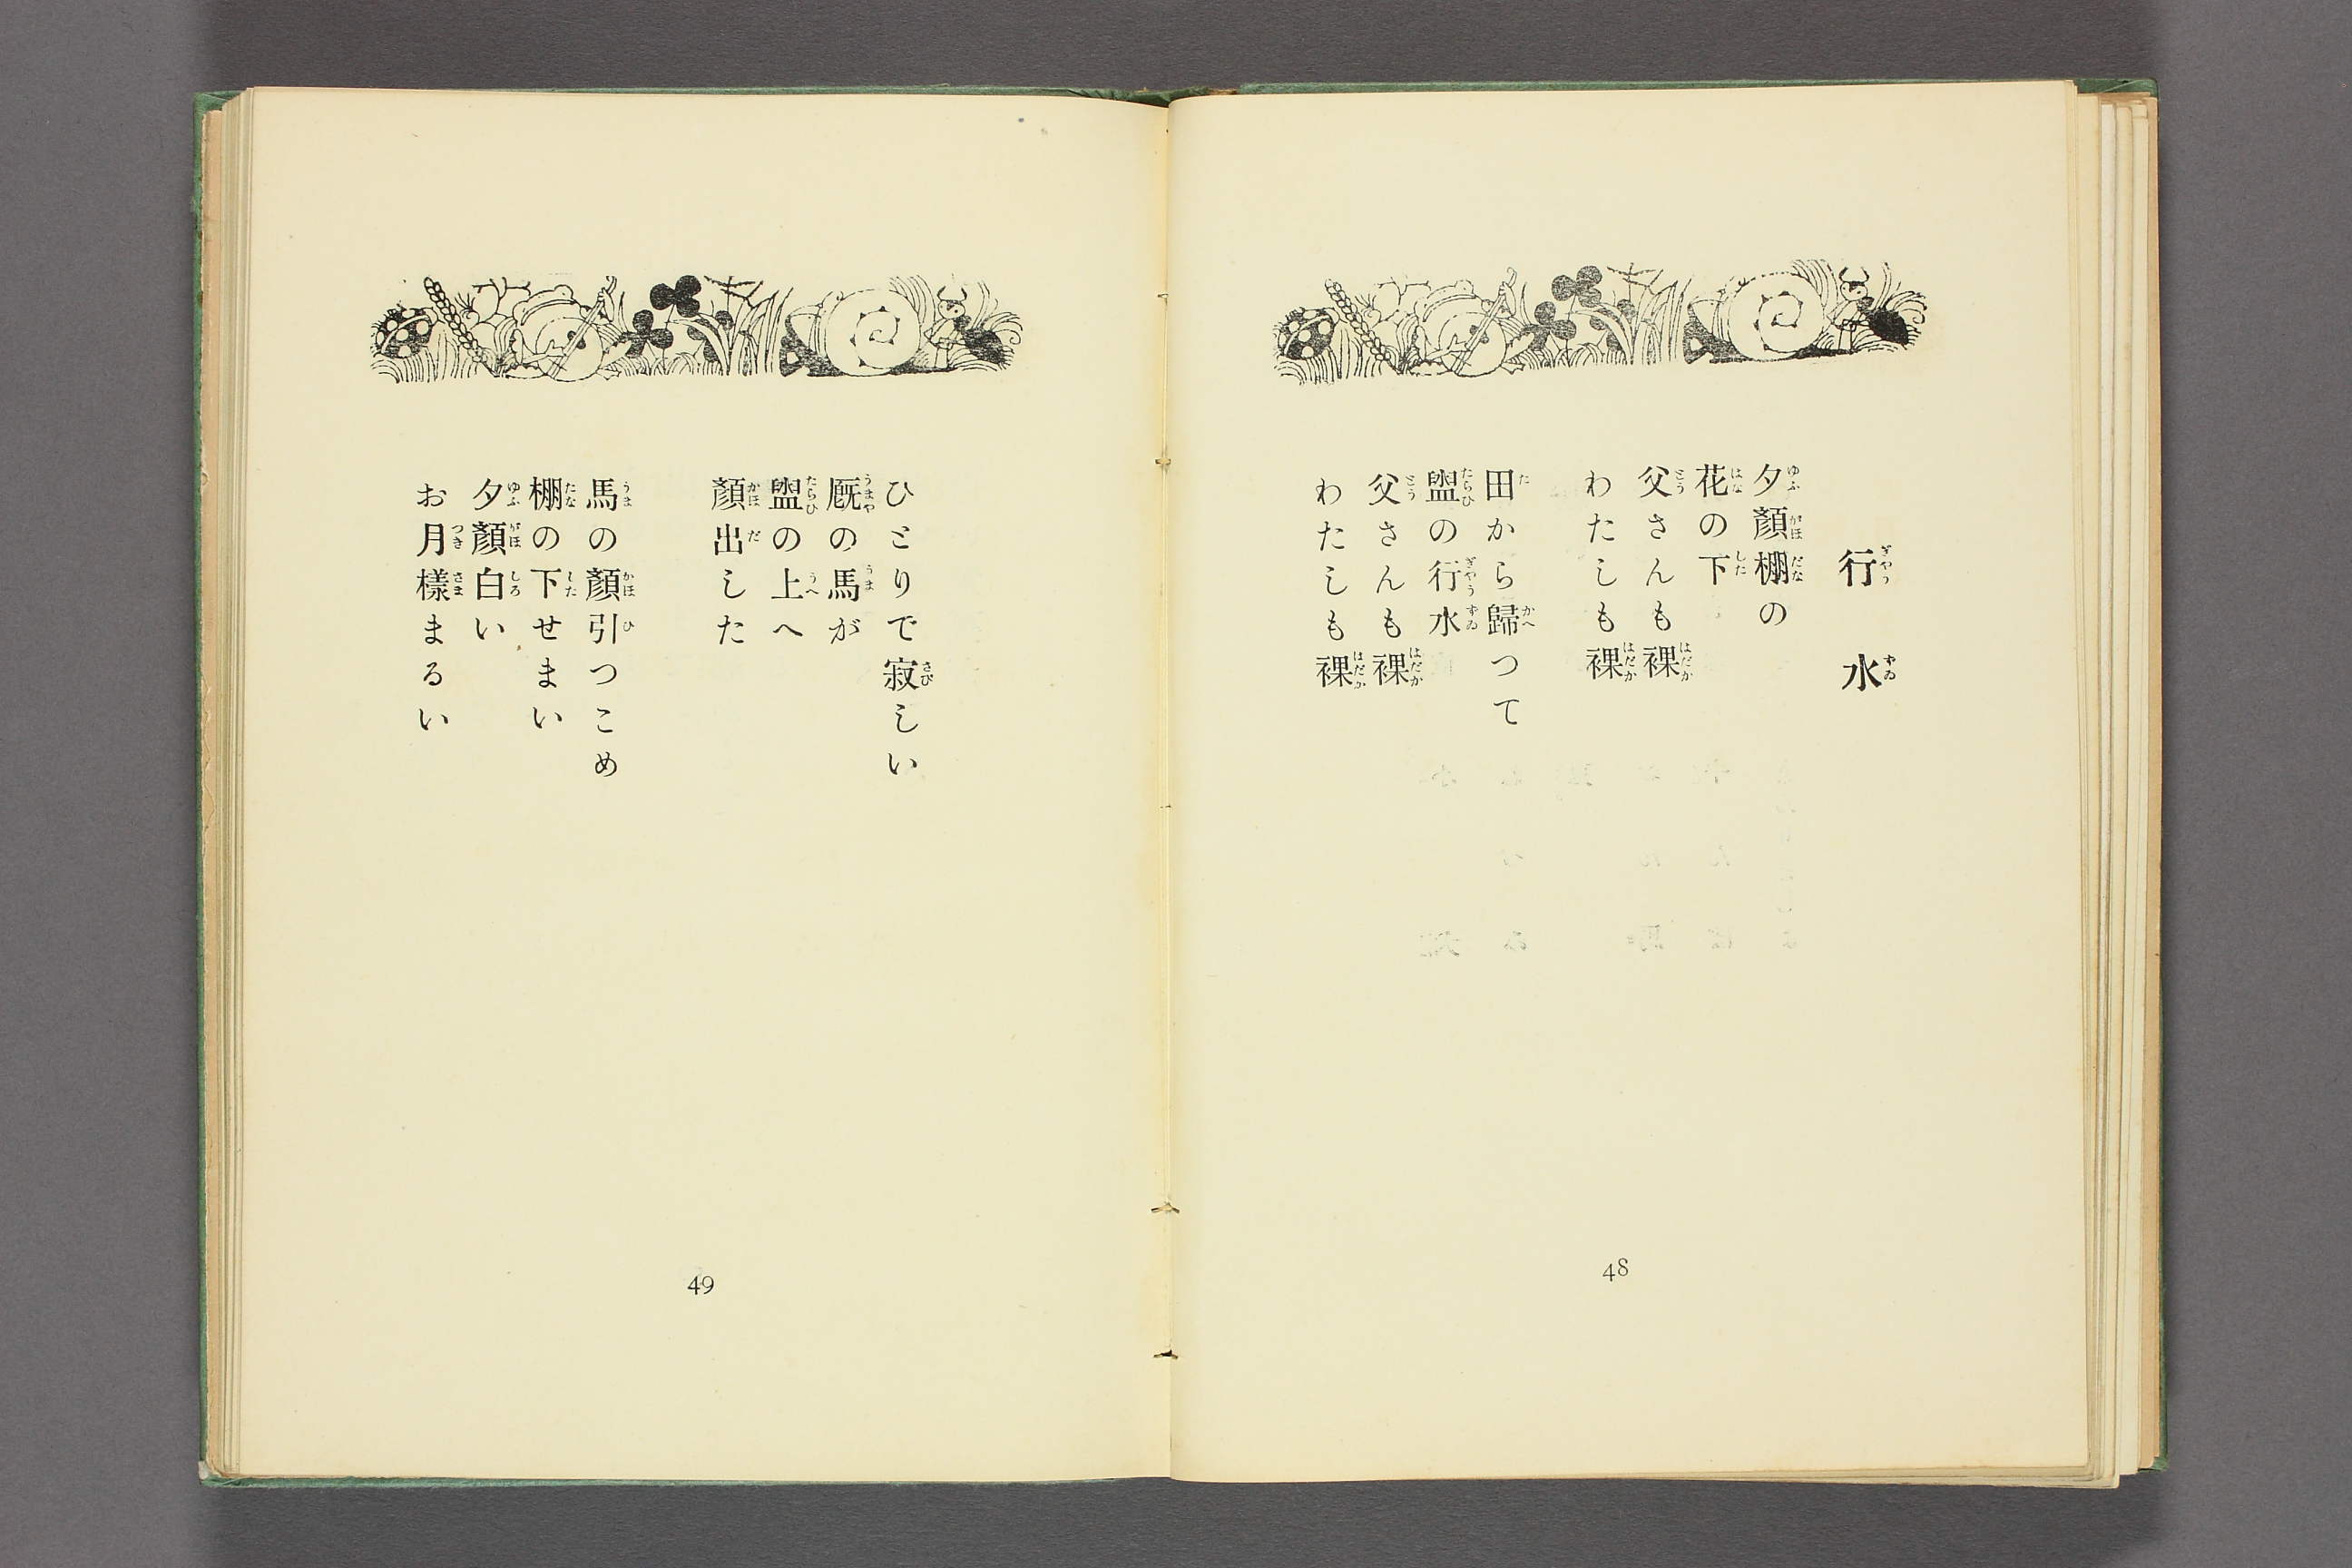 行水
夕顏棚の
花の下
父さんも裸
わたしも裸
田から歸つて
盥の行水
父さんも裸
わたしも裸
48
ひとりで寂しい
厩の馬が
盥の上へ
顏出した
馬の顏引つこめ
棚の下せまい
夕顏白い
お月樣まるい
49